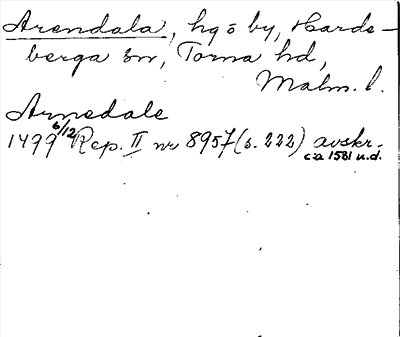 Arendala, hg o by, Harde-
berga sn, Torna hd,
Malm. l.
Arnedale
1499 6/12 Rep. II nr 8957 (s. 222) avskr.
ca 1581 u.d.